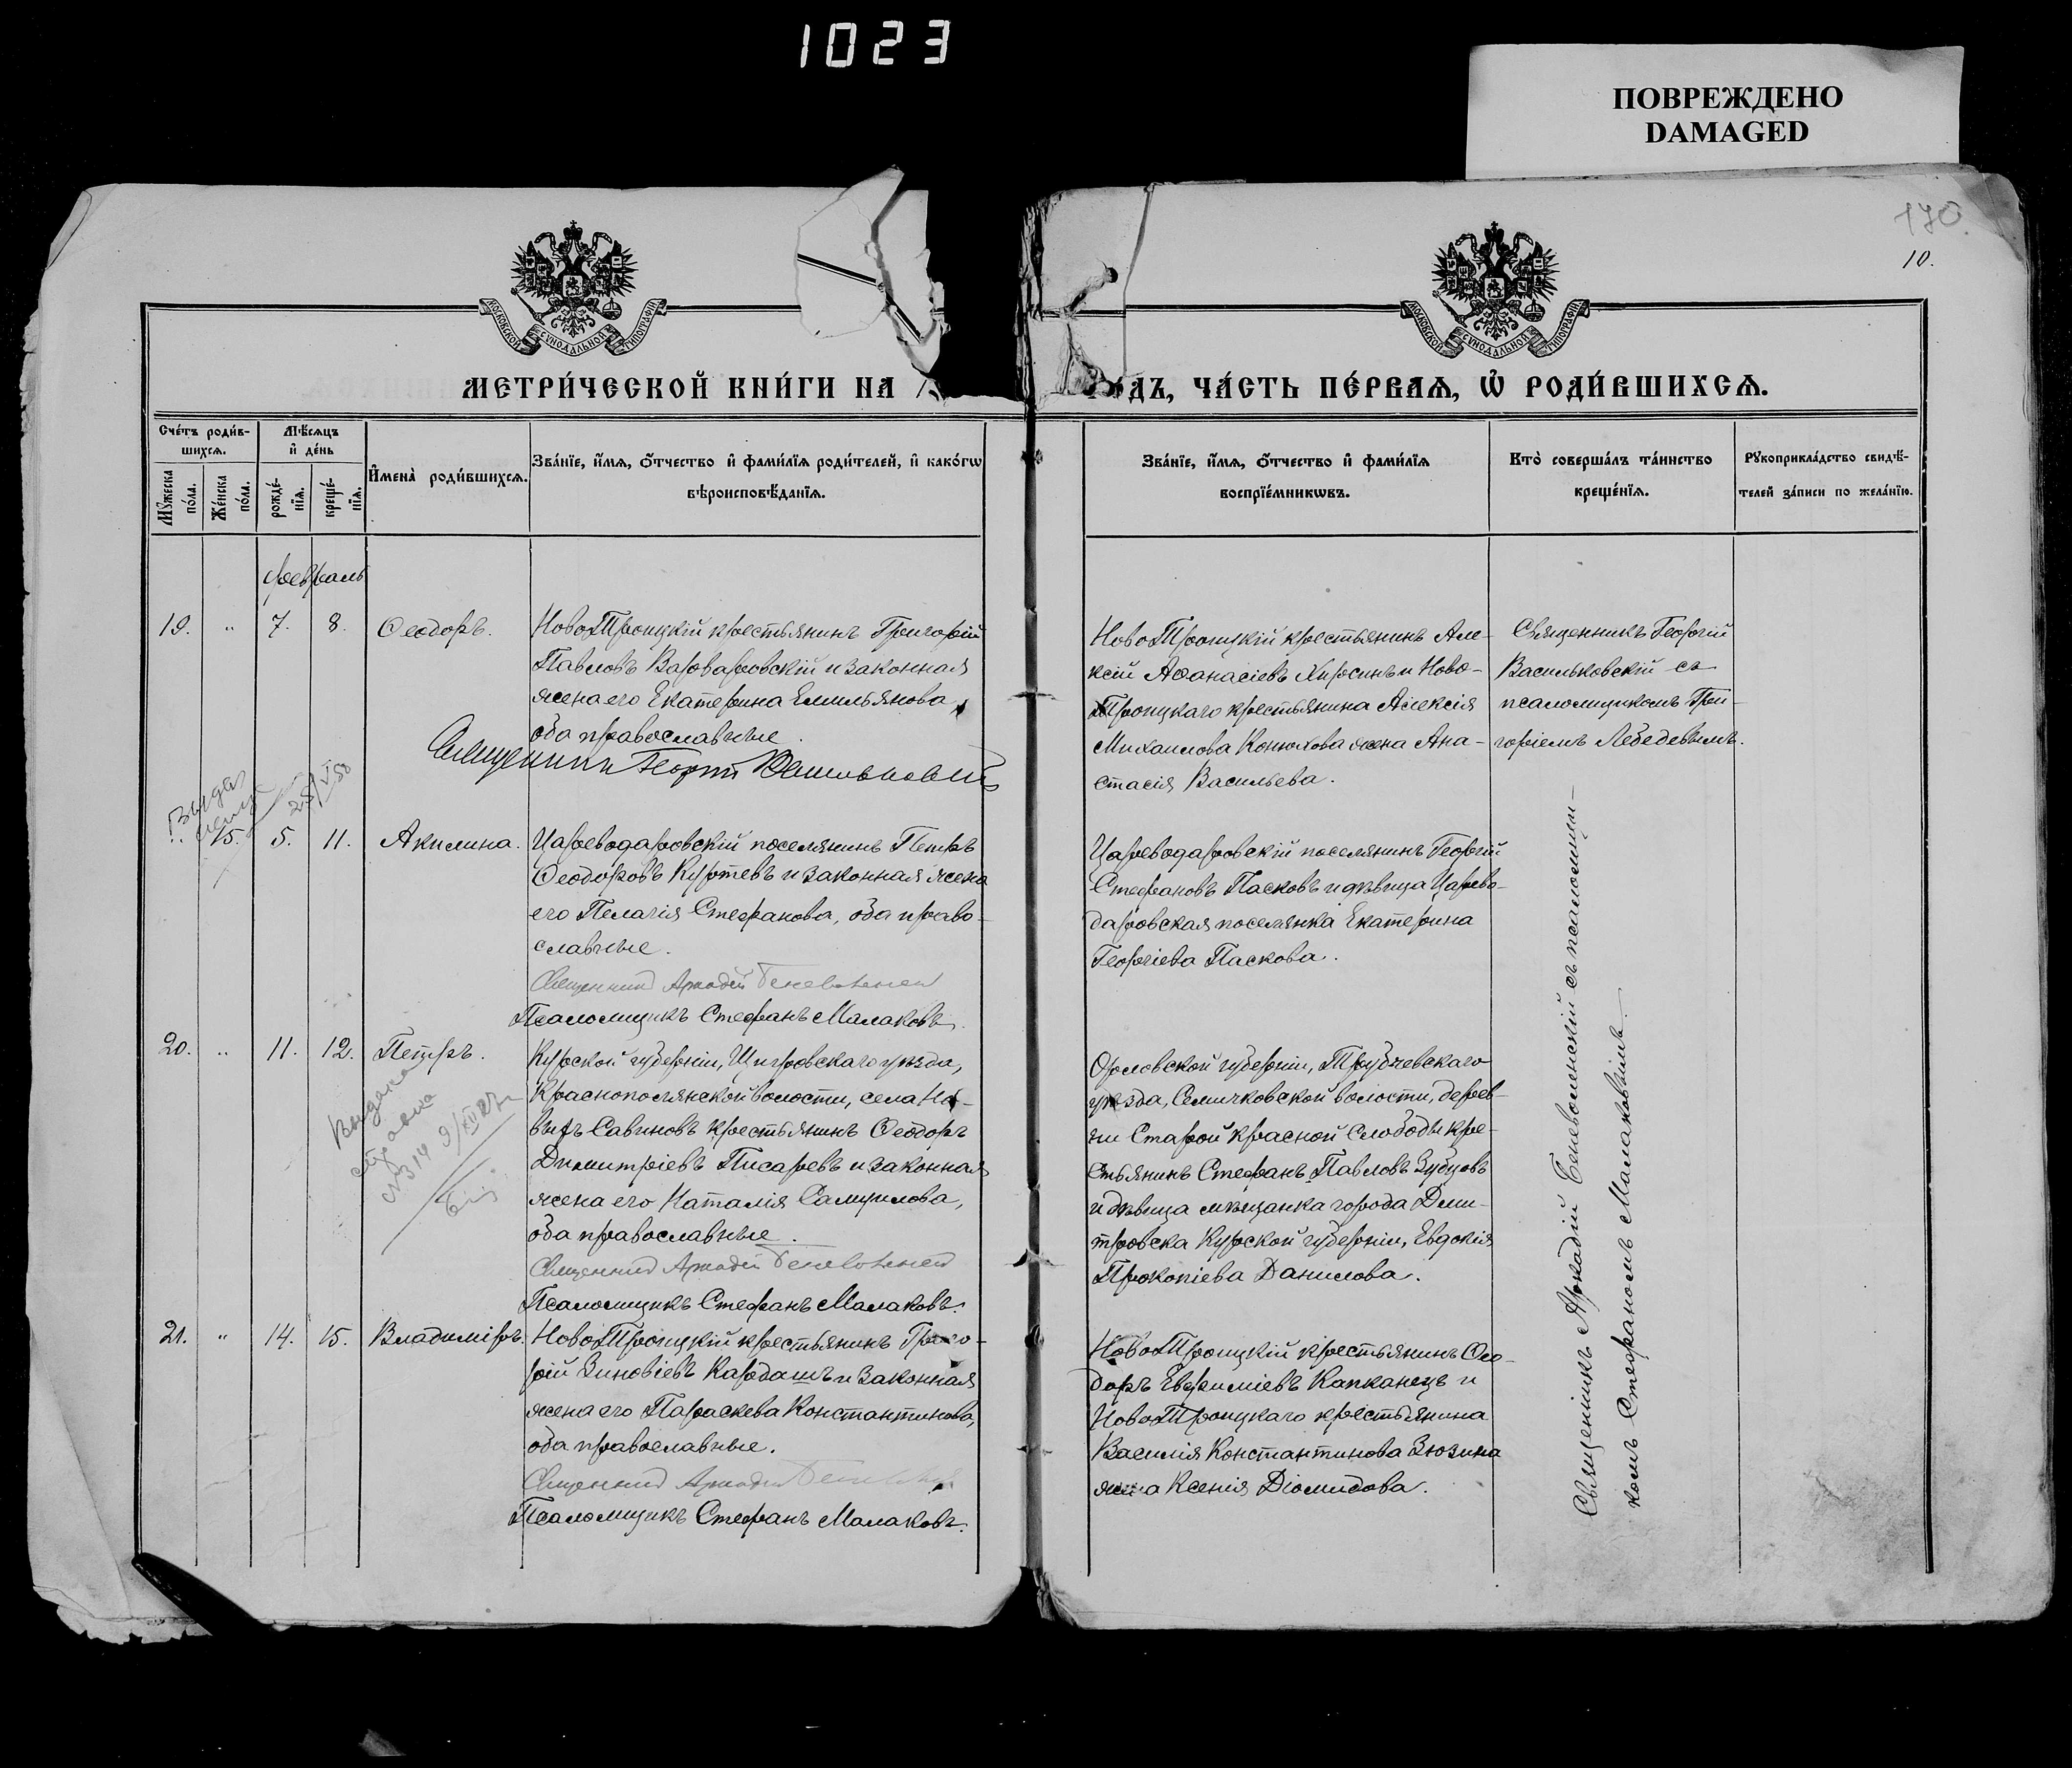 1023
ПОВРЕЖДЕНО
DAMAGED
170.
10.
МОСКОВСКОЙ СѴНОДАЛЬНОЙ ТИПОГРАФІИ
МОСКОВСКОЙ СѴНОДАЛЬНОЙ ТИПОГРАФІИ
МЕТРИ́ЧЕСКОЙ КНИ́ГИ НА 1
ДЪ, ЧА́СТЬ ПЕ́РВАѦ, Ѡ҆ РОДИ́ВШИХСѦ.
Сче́тъ роди́в-
шихсѧ.
Мѣ́сѧцъ
и҆ де́нь
Мꙋ́жеска по́ла.
Же́нска по́ла.
рожде́-
нїѧ.
креще́-
нїѧ.
И҆мена̀ роди́вшихсѧ.
Зва́нїе, и҆́мѧ, ѻ҆́тчество и҆ фами́лїѧ роди́телей, и҆ како́гѡ
вѣроисповѣ́данїѧ.
Зва́нїе, и҆́мѧ, ѻ҆́тчество и҆ фами́лїѧ
воспрїе́мникѡвъ.
Кто̀ соверша́лъ та́инство
креще́нїѧ.
Рꙋкоприкла́дство свидѣ́-
телей за́писи по жела́нїю.
февраль
19. " 7. 8. Ѳеодоръ.
НовоТроицкій крестьянинъ Григорій
Павловъ Варваровскій и законная
жена его Екатерина Емильянова,
оба православные.
Священникъ Георгій Васильковскій
НовоТроицкій крестьянинъ Але-
ксій Аѳанасіевъ Хирсинъ и Ново-
Троицкаго крестьянина Алексія
Михаилова Конюхова жена Ана-
стасія Васильева.
Священникъ Георгій
Васильковскій съ
псаломщикомъ Гри-
горіемъ Лебедевымъ.
28/VI 50
" 15. 5. 11. Акилина.
Цареводаровскій поселянинъ Петръ
Ѳеодоровъ Куртевъ и законная жена
его Пелагія Стефанова, оба право-
славные.
Священникъ Аркадій Беневоленскій
Псаломщикъ Стефанъ Малаковъ.
Цареводаровскій поселянинъ Георгій
Стефановъ Пасковъ и дѣвица Царево-
даровская поселянка Екатерина
Георгіева Паскова.
20. " 11. 12. Петръ.
Выдана
справка
Курской губерніи, Щигровскаго уѣзда,
Краснополянской волости, села Но-
выхъ Савиновъ крестьянинъ Ѳеодоръ
Димитріевъ Писаревъ и законная
жена его Наталія Самуилова,
оба православные.
Священникъ Аркадій Беневоленскій
Псаломщикъ Стефанъ Малаковъ.
Орловской губерніи, Трубчевскаго
уѣзда, Семячковской волости, дерев-
ни Старой Красной Слободы кре-
стьянинъ Стефанъ Павловъ Зубцовъ
и дѣвица мѣщанка города Дми-
тровска Курской губерніи, Евдокія
Прокопіева Данилова.
21. " 14. 15. Владиміръ.
НовоТроицкій крестьянинъ Григо-
рій Зиновіевъ Кардашъ и законная
жена его Параскева Константинова,
оба православные.
Священникъ Аркадій
Псаломщикъ Стефанъ Малаковъ.
НовоТроицкій крестьянинъ Ѳео-
доръ Евфиміевъ Капканецъ и
НовоТроицкаго крестьянина
Василія Константинова Зюзина
жена Ксенія Діомидова.
Священникъ Аркадій Беневоленскій съ псаломщи-
комъ Стефаномъ Малаковымъ.